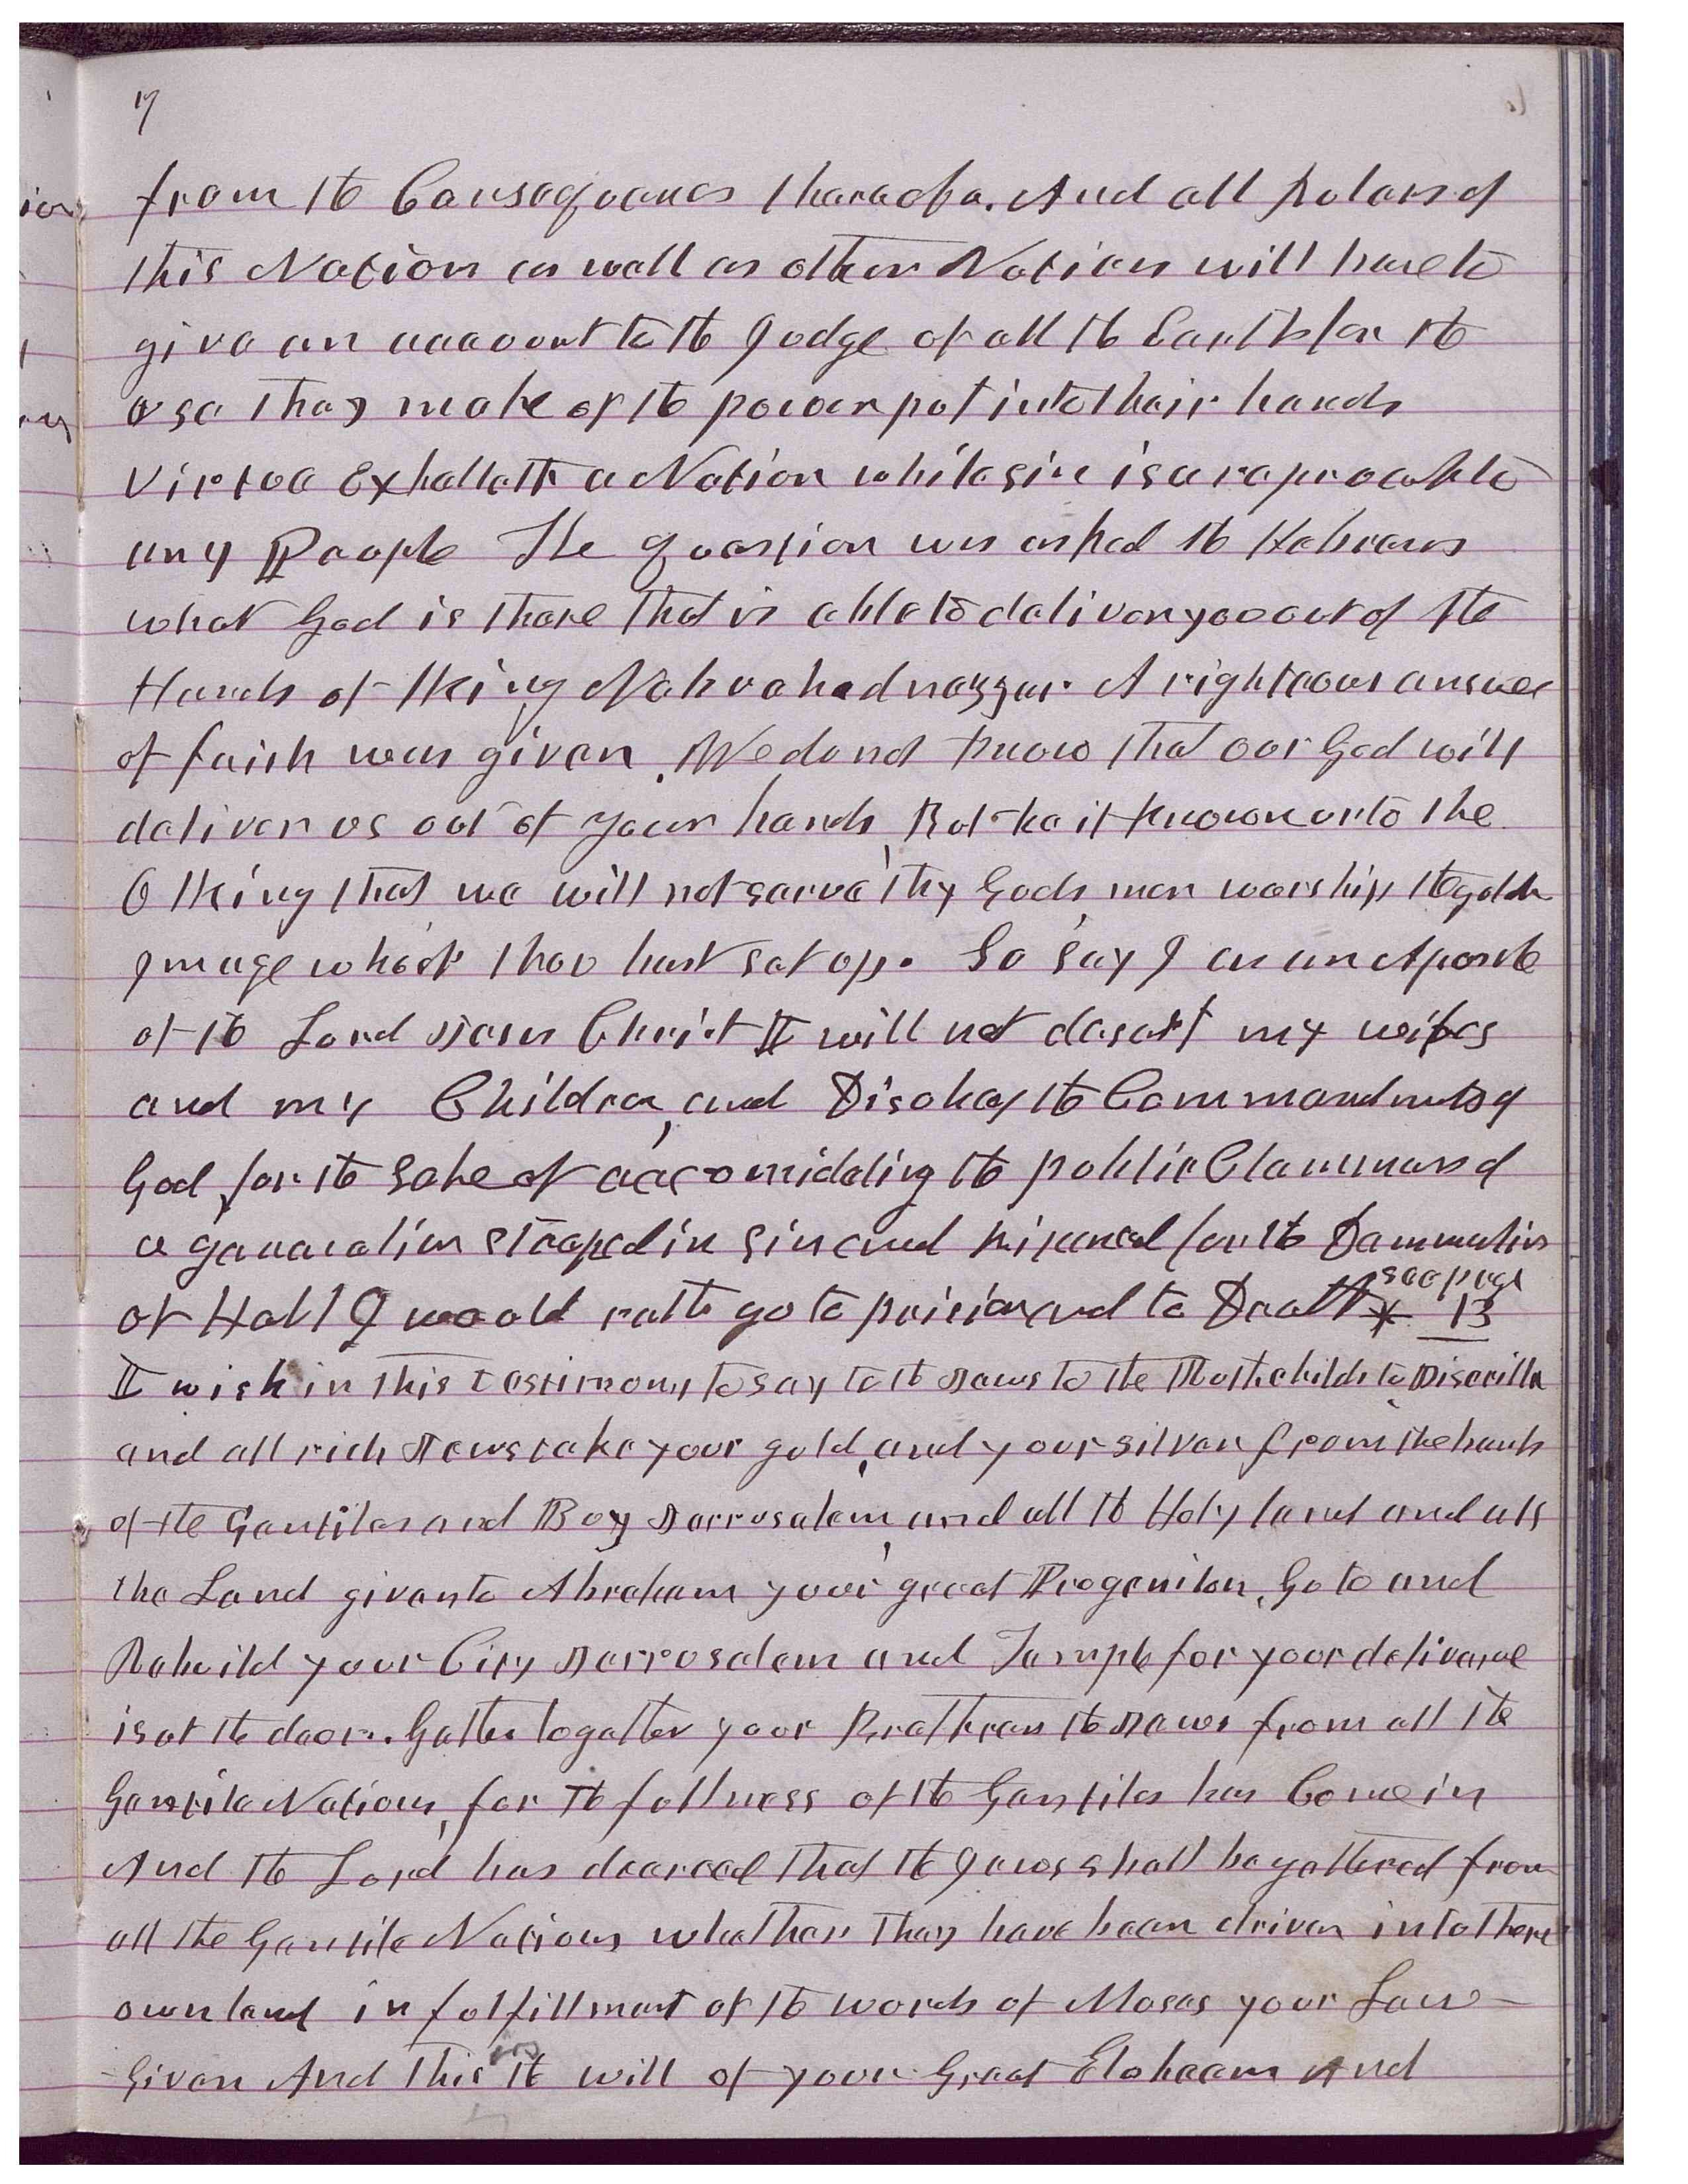 17
from the Consequences thereof. And all Rulers of
this Nation as well as other Nations will have to
give an account to the Judge of all the Earth for the
use they make of the power put into their hands
Virtue Exhalteth a Nation while sin is a reproach to
any People The question was asked the Hebrews
what God is there that is able to deliver you out of the
Hands of King Nebuchadnezzar A righteous answer
of faith was given. We do not know that our God will
deliver us out of your hands, But be it known unto the
O King that we will not serve thy Gods, nor worship the golden
Image which thou hast set up. So say I as an Apostle
of the Lord Jesus Christ I will not desert my wives
and my Children, and Disobey the Commandments of
God, for the sake of accomidating the public Clammer of
a generation steeped in sin and ripened for the Dammation
of Hell I would rather go to prision and to Death * see page 13
I wish in this testimony to say to the Jews to the Rothchilds to Diserilla
and all rich Jews take your gold, and your silver from the banks
of the Gentiles and Buy Jerrusalem, and all the Holy land and all
the Land given to Abraham your great Progenitor. Go to and
Rebuild your City Jerrusalem and Temple for your deliverance
is at the door. Gather together your Brethren the Jews from all the
Gentile Nations, for the fullness of the Gentiles has Come in
And the Lord has decreed that the Jews shall be gathered from
all the Gentile Nations whether they have been driven into there
own land in fulfillment of the words of Moses your Law-
Giver And this is the will of your Great Eloheem And